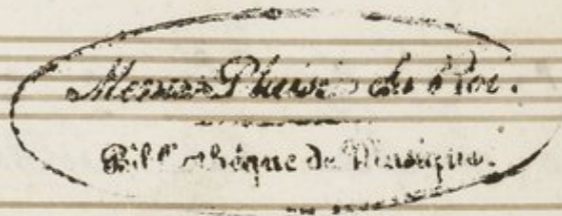 Menus Plaisirs du Roi.
Bibliothèque de Musique.